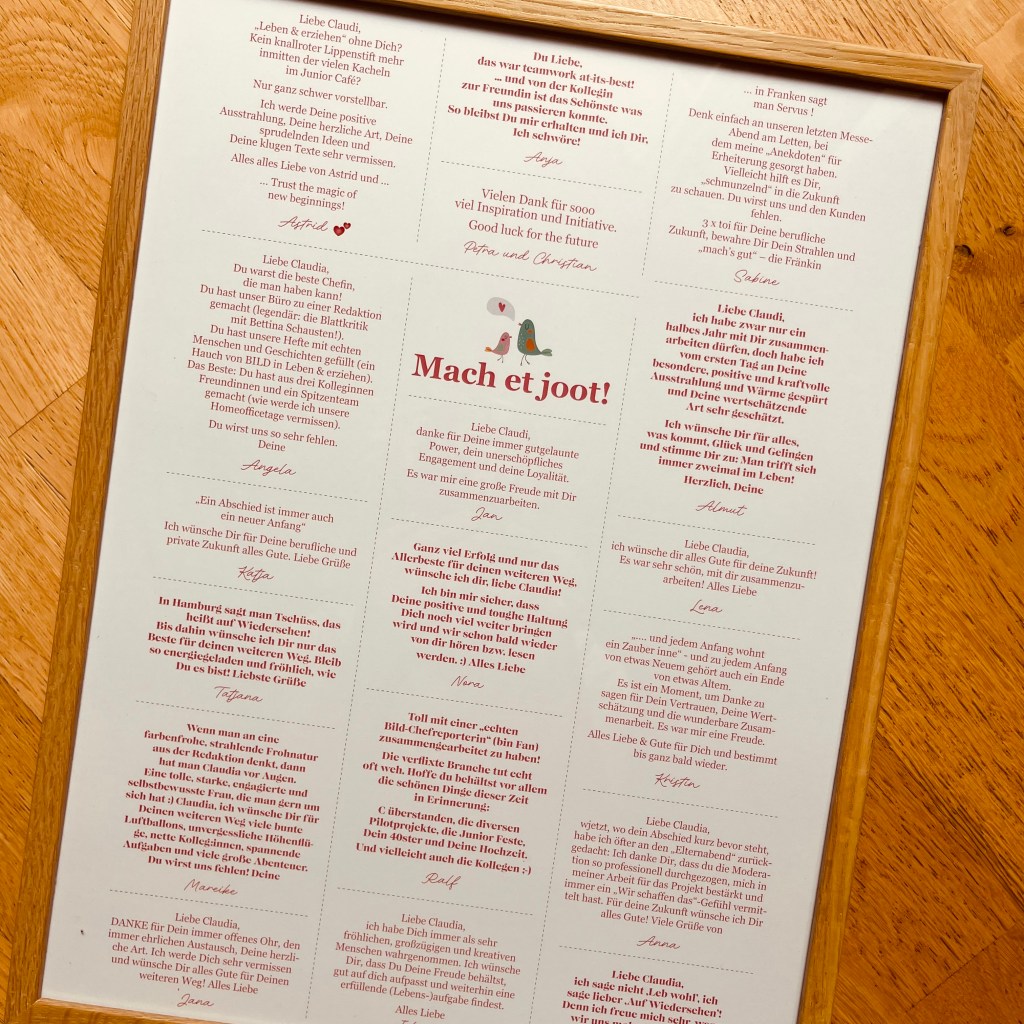 Liebe Claudi,
„Leben & erziehen“ ohne Dich?
Kein knallroter Lippenstift mehr
inmitten der vielen Kacheln
im Junior Café?
Nur ganz schwer vorstellbar.
Ich werde Deine positive
Ausstrahlung, Deine herzliche Art, Deine
sprudelnden Ideen und
Deine klugen Texte sehr vermissen.
Alles alles Liebe von Astrid und ...
... Trust the magic of
new beginnings!
Astrid
Liebe Claudia,
Du warst die beste Chefin,
die man haben kann!
Du hast unser Büro zu einer Redaktion
gemacht (legendär: die Blattkritik
mit Bettina Schausten!).
Du hast unsere Hefte mit echten
Menschen und Geschichten gefüllt (ein
Hauch von BILD in Leben & erziehen).
Das Beste: Du hast aus drei Kolleginnen
Freundinnen und ein Spitzenteam
gemacht (wie werde ich unsere
Homeofficetage vermissen).
Du wirst uns so sehr fehlen.
Deine
Angela
„Ein Abschied ist immer auch
ein neuer Anfang“
Ich wünsche Dir für Deine berufliche und
private Zukunft alles Gute. Liebe Grüße
Katja
In Hamburg sagt man Tschüss, das
heißt auf Wiedersehen!
Bis dahin wünsche ich Dir nur das
Beste für deinen weiteren Weg. Bleib
so energiegeladen und fröhlich, wie
Du es bist! Liebste Grüße
Tatjana
Wenn man an eine
farbenfrohe, strahlende Frohnatur
aus der Redaktion denkt, dann
hat man Claudia vor Augen.
Eine tolle, starke, engagierte und
selbstbewusste Frau, die man gern um
sich hat :) Claudia, ich wünsche Dir für
Deinen weiteren Weg viele bunte
Luftballons, unvergessliche Höhenflü-
ge, nette Kolleg:innen, spannende
Aufgaben und viele große Abenteuer.
Du wirst uns fehlen! Deine
Mareike
Liebe Claudia,
DANKE für Dein immer offenes Ohr, den
immer ehrlichen Austausch, Deine herzli-
che Art. Ich werde Dich sehr vermissen
und wünsche Dir alles Gute für Deinen
weiteren Weg! Alles Liebe
Jana
Du Liebe,
das war teamwork at-its-best!
... und von der Kollegin
zur Freundin ist das Schönste was
uns passieren konnte.
So bleibst Du mir erhalten und ich Dir,
Ich schwöre!
Anja
Vielen Dank für sooo
viel Inspiration und Initiative.
Good luck for the future
Petra und Christian
Mach et joot!
Liebe Claudi,
danke für Deine immer gutgelaunte
Power, dein unerschöpfliches
Engagement und deine Loyalität.
Es war mir eine große Freude mit Dir
zusammenzuarbeiten.
Jan
Ganz viel Erfolg und nur das
Allerbeste für deinen weiteren Weg,
wünsche ich dir, liebe Claudia!
Ich bin mir sicher, dass
Deine positive und toughe Haltung
Dich noch viel weiter bringen
wird und wir schon bald wieder
von dir hören bzw. lesen
werden. :) Alles Liebe
Nora
Toll mit einer „echten
Bild-Chefreporterin“ (bin Fan)
zusammengearbeitet zu haben!
Die verflixte Branche tut echt
oft weh. Hoffe du behältst vor allem
die schönen Dinge dieser Zeit
in Erinnerung:
C überstanden, die diversen
Pilotprojekte, die Junior Feste,
Dein 40ster und Deine Hochzeit.
Und vielleicht auch die Kollegen ;-)
Ralf
Liebe Claudia,
ich habe Dich immer als sehr
fröhlichen, großzügigen und kreativen
Menschen wahrgenommen. Ich wünsche
Dir, dass Du Deine Freude behältst,
gut auf dich aufpasst und weiterhin eine
erfüllende (Lebens-)aufgabe findest.
Alles Liebe
... in Franken sagt
man Servus !
Denk einfach an unseren letzten Messe-
Abend am Letten, bei
dem meine „Anekdoten“ für
Erheiterung gesorgt haben.
Vielleicht hilft es Dir,
„schmunzelnd“ in die Zukunft
zu schauen. Du wirst uns und den Kunden
fehlen.
3 x toi für Deine berufliche
Zukunft, bewahre Dir Dein Strahlen und
„mach's gut“ – die Fränkin
Sabine
Liebe Claudi,
ich habe zwar nur ein
halbes Jahr mit Dir zusammen-
arbeiten dürfen, doch habe ich
vom ersten Tag an Deine
besondere, positive und kraftvolle
Ausstrahlung und Wärme gespürt
und Deine wertschätzende
Art sehr geschätzt.
Ich wünsche Dir für alles,
was kommt, Glück und Gelingen
und stimme Dir zu: Man trifft sich
immer zweimal im Leben!
Herzlich, Deine
Almut
Liebe Claudia,
ich wünsche dir alles Gute für deine Zukunft!
Es war sehr schön, mit dir zusammenzu-
arbeiten! Alles Liebe
Lena
„.... und jedem Anfang wohnt
ein Zauber inne“ - und zu jedem Anfang
von etwas Neuem gehört auch ein Ende
von etwas Altem.
Es ist ein Moment, um Danke zu
sagen für Dein Vertrauen, Deine Wert-
schätzung und die wunderbare Zusam-
menarbeit. Es war mir eine Freude.
Alles Liebe & Gute für Dich und bestimmt
bis ganz bald wieder.
Kristin
Liebe Claudia,
wjetzt, wo dein Abschied kurz bevor steht,
habe ich öfter an den „Elternabend“ zurück-
gedacht: Ich danke Dir, dass du die Modera-
tion so professionell durchgezogen, mich in
meiner Arbeit für das Projekt bestärkt und
immer ein „Wir schaffen das“-Gefühl vermit-
telt hast. Für deine Zukunft wünsche ich Dir
alles Gute! Viele Grüße von
Anna
Liebe Claudia,
ich sage nicht ,Leb wohl', ich
sage lieber ,Auf Wiedersehen'!
Denn ich freue mich sehr, wenn